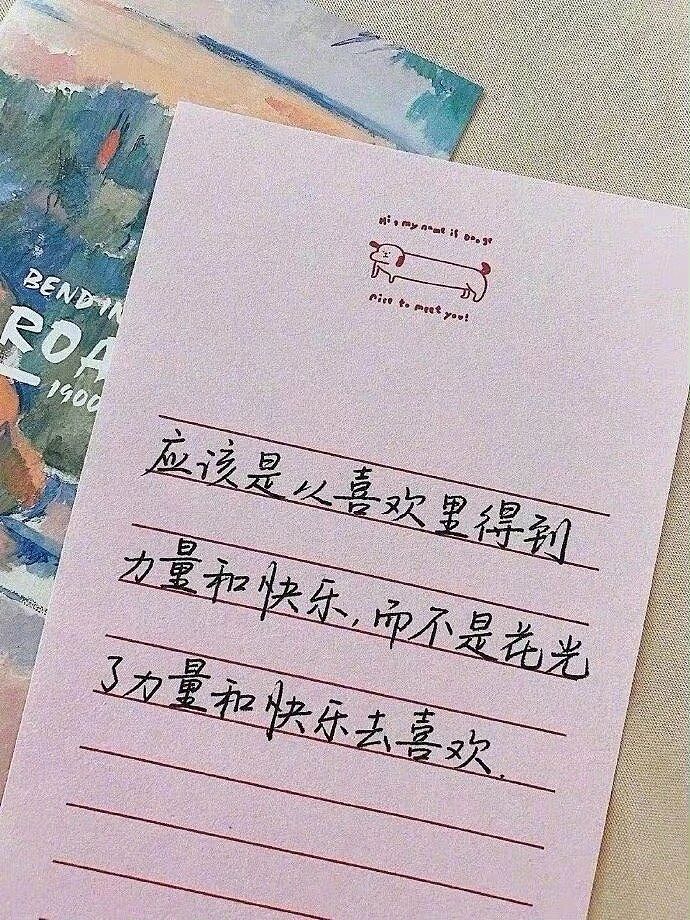 BENDIN
ROA
1900
Hi, my name is Doogs
nice to meet you!
应该是以喜欢里得到
力量和快乐,而不是花光
了力量和快乐去喜欢.